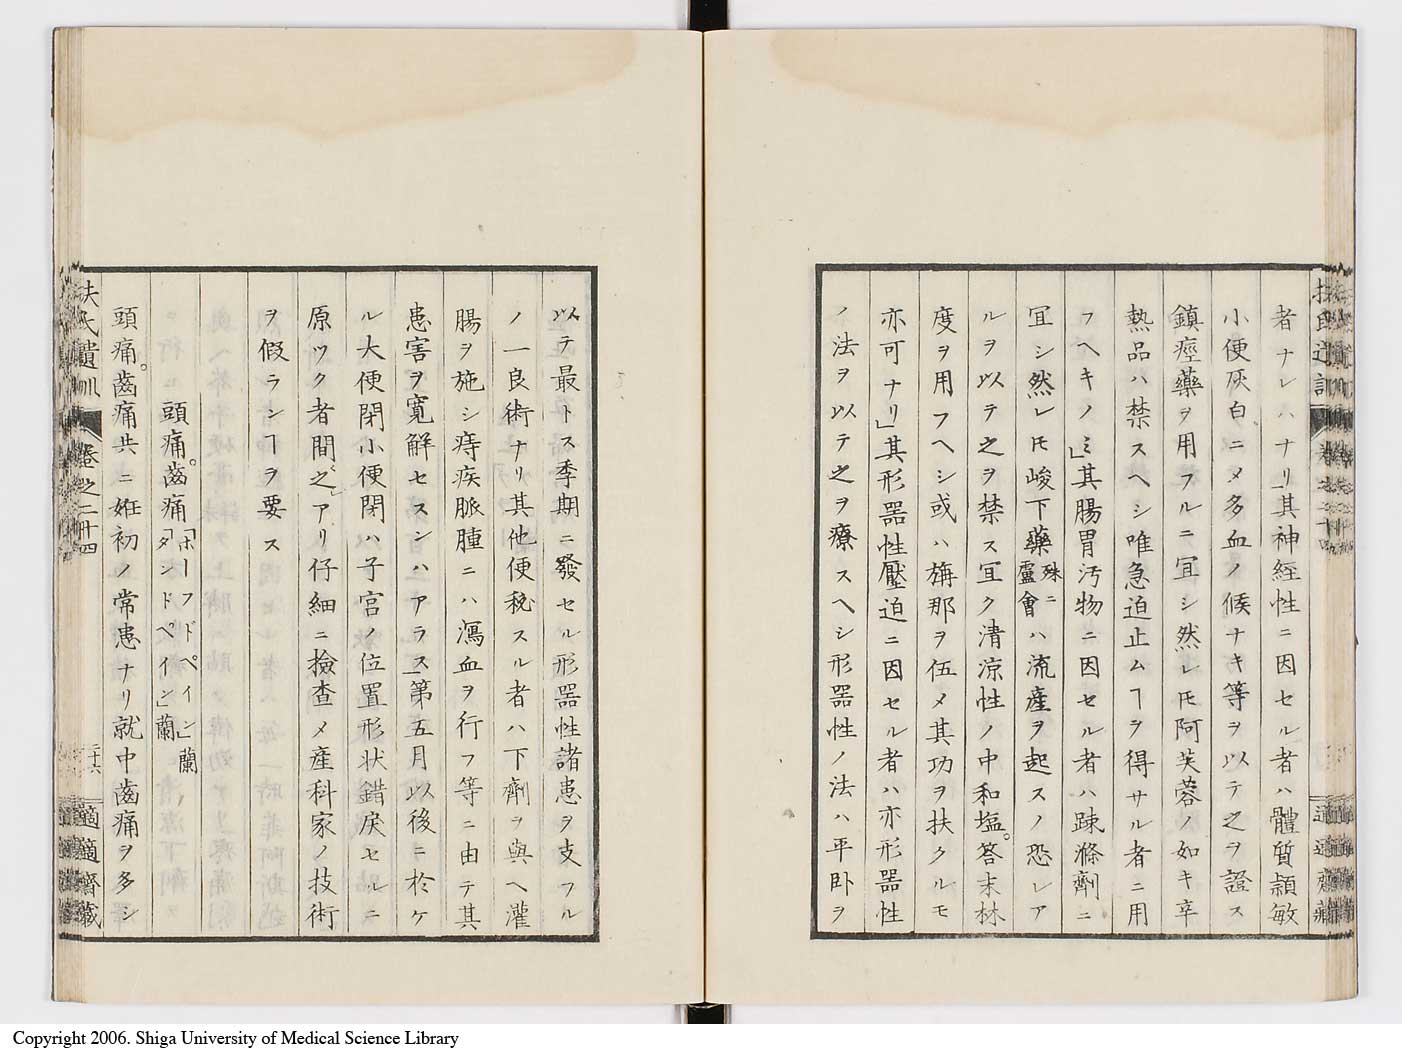 者ナレハナリ」其神経性ニ因セル者ハ體質穎敏
小便灰白ニメ多血ノ候ナキ等ヲ以テ之ヲ證ス
鎮痙藥ヲ用フルニ冝シ然レ𪜈阿芙蓉ノ如キ辛
熱品ハ禁スヘシ唯急迫止ムヿヲ得サル者ニ用
フヘキノミ」其腸胃汚物ニ因セル者ハ疎滌劑ニ
冝シ然レ𪜈峻下藥殊ニ盧會ハ流産ヲ起スノ恐レア
ルヲ以テ之ヲ禁ス冝ク清涼性ノ中和塩。答末林
度ヲ用フヘシ或ハ旃那ヲ伍メ其功ヲ扶クルモ
亦可ナリ」其形器性壓迫ニ因セル者ハ亦形器性
ノ法ヲ以テ之ヲ療スヘシ形器性ノ法ハ平臥ヲ
以テ最トス季期ニ發セル形器性諸患ヲ支フル
ノ一良術ナリ其他便秘スル者ハ下劑ヲ與ヘ灌
腸ヲ施シ痔疾脈腫ニハ瀉血ヲ行フ等ニ由テ其
患害ヲ寛解セスンハアラス」第五月以後ニ於ケ
ル大便閉小便閉ハ子宮ノ位置形状錯戻セルニ
原ツク者間之アリ仔細ニ撿查メ産科家ノ技術
ヲ假ランヿヲ要ス
頭痛。齒痛「ホーフドペイン」蘭「タンドペイン」蘭
頭痛。齒痛共ニ姙初ノ常患ナリ就中齒痛ヲ多シ
扶氏遺訓 卷之二十四 三十六 適適齋藏
Copyright 2006. Shiga University of Medical Science Library